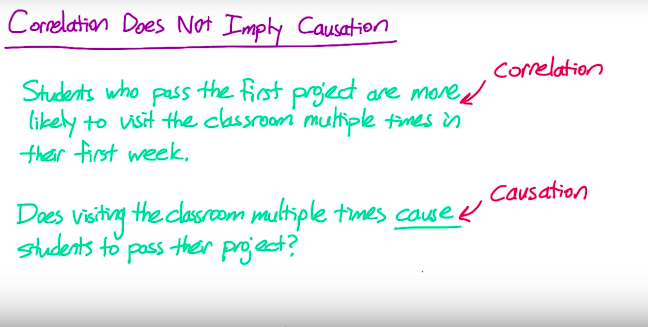 Correlation Does Not Imply Causation
Correlation
Students who pass the first project are more
likely to visit the classroom multiple times in
their first week.
Causation
Does visiting the classroom multiple times cause
students to pass their project?